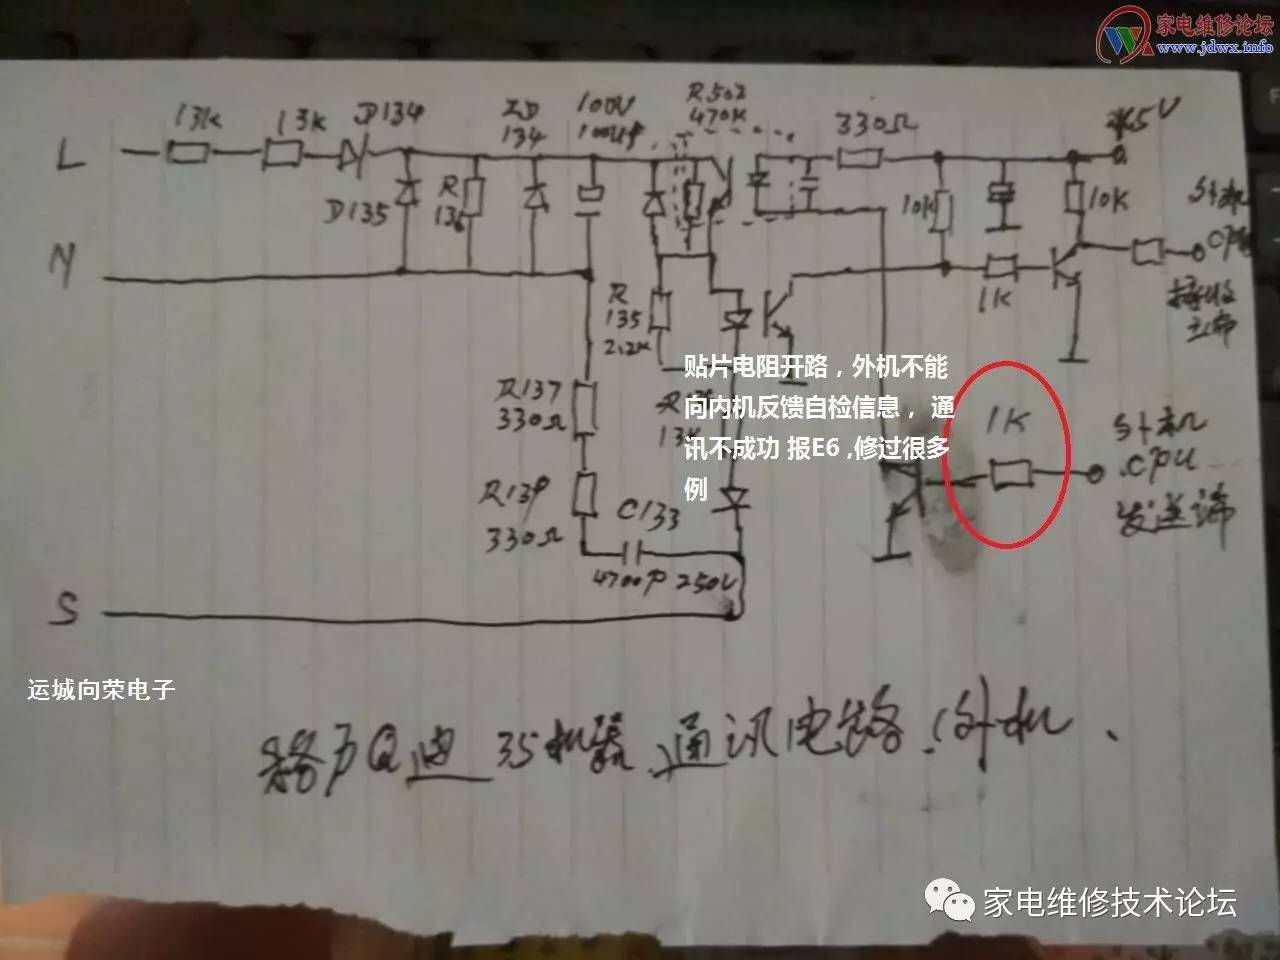 家电维修论坛
www.jdwx.info
L
13k
13k
D134
ZD
134
100V
100uf
R502
470K
330Ω
5V
D135
R
136
10K
10K
外机
CPU
接收
N
R
135
2.2K
1K
贴片电阻开路，外机不能
向内机反馈自检信息， 通
讯不成功 报E6 ,修过很多
例
R137
330Ω
13K
1K
外机
CPU
发送端
R139
330Ω
C133
4700P 250V
S
运城向荣电子
格力Q迪 35机器 通讯电路.(外机
家电维修技术论坛